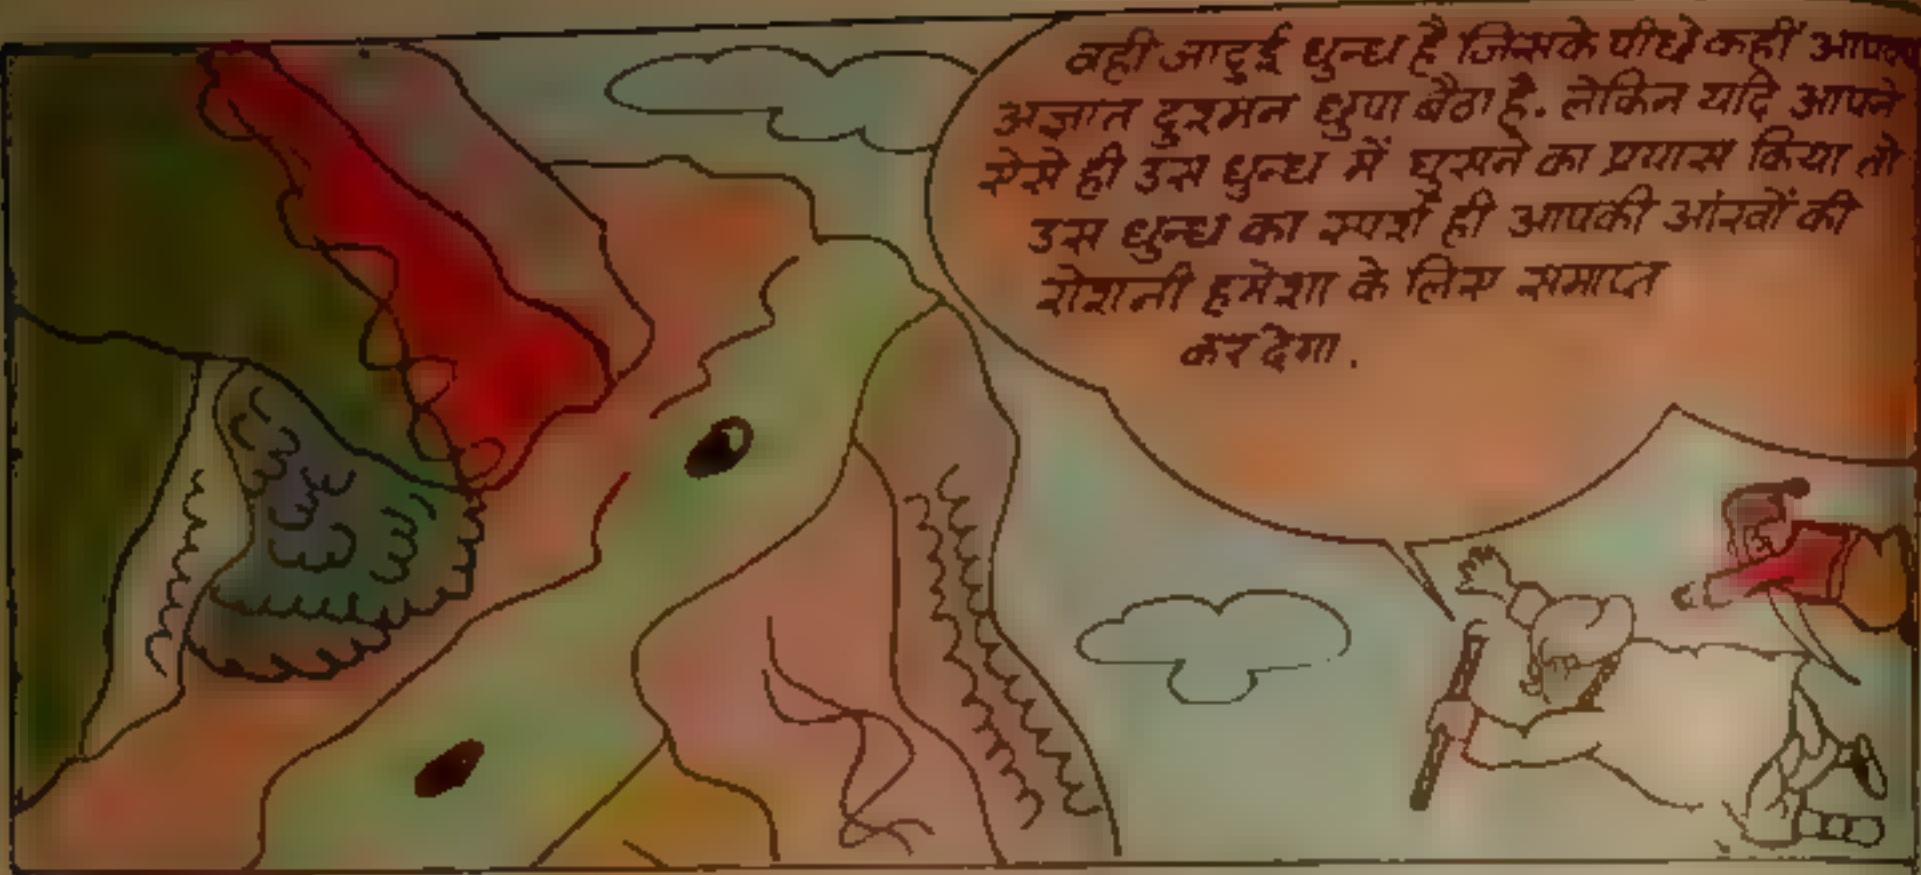 वही जादुई धुन्ध है जिसके पीछे कहीं आपका
अज्ञात दुश्मन छुपा बैठा है. लेकिन यदि आपने
ऐसे ही उस धुन्ध में घुसने का प्रयास किया तो
उस धुन्ध का स्पर्श ही आपकी आंखों की
रोशनी हमेशा के लिए समाप्त
कर देगा.